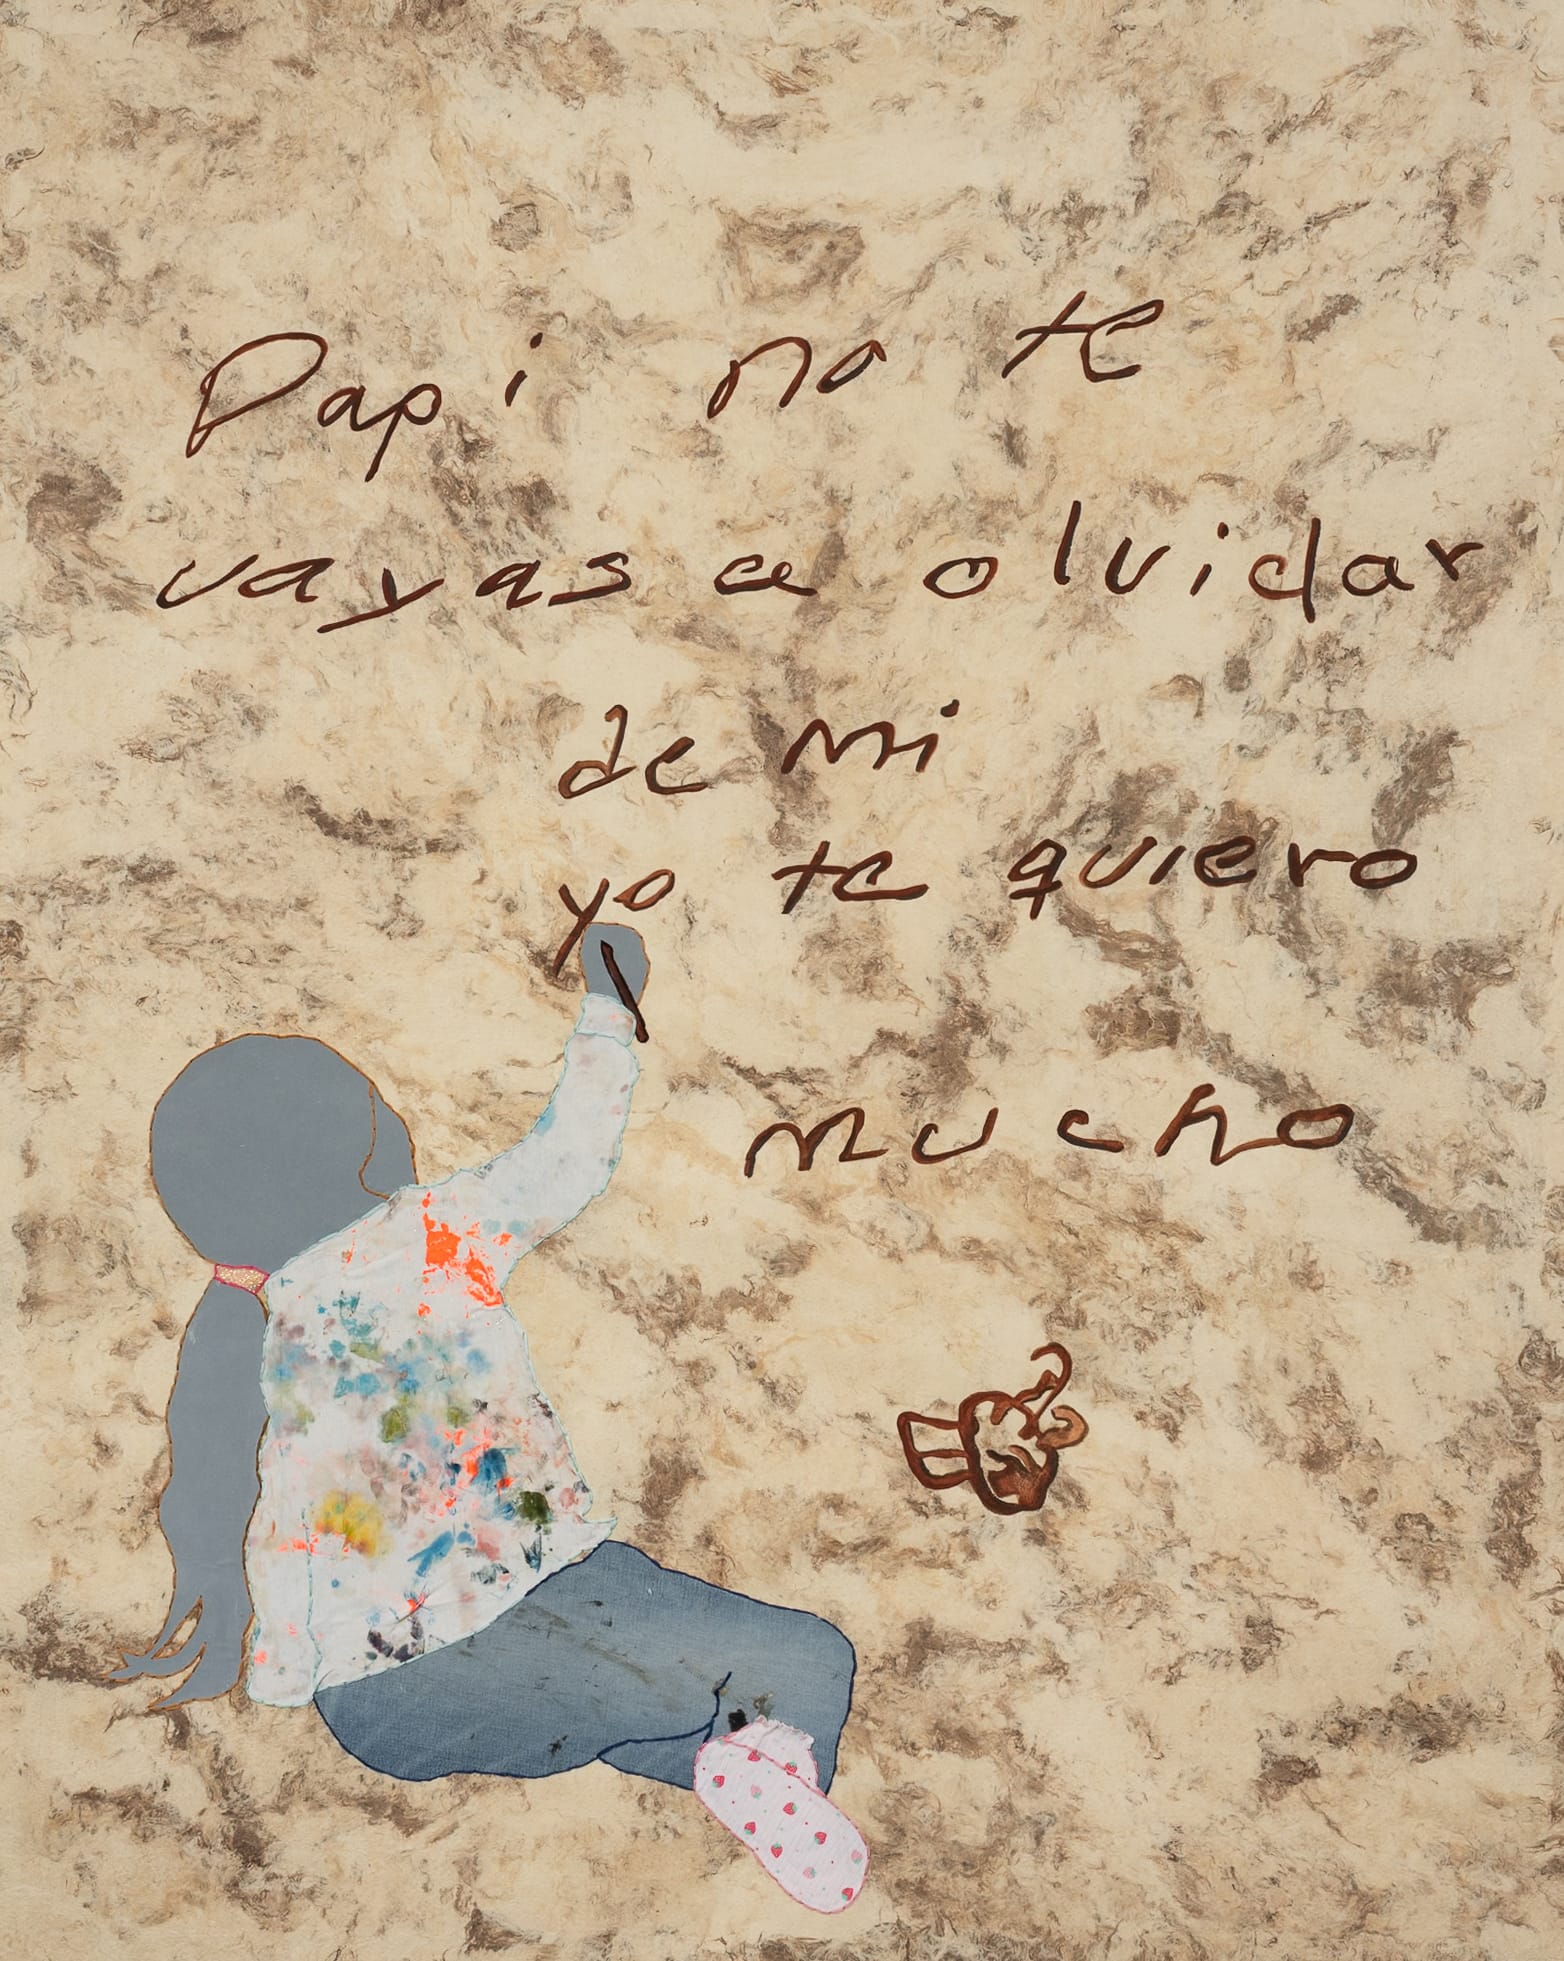 Papi no te
vayas a olvidar
de mi
yo te quiero
mucho